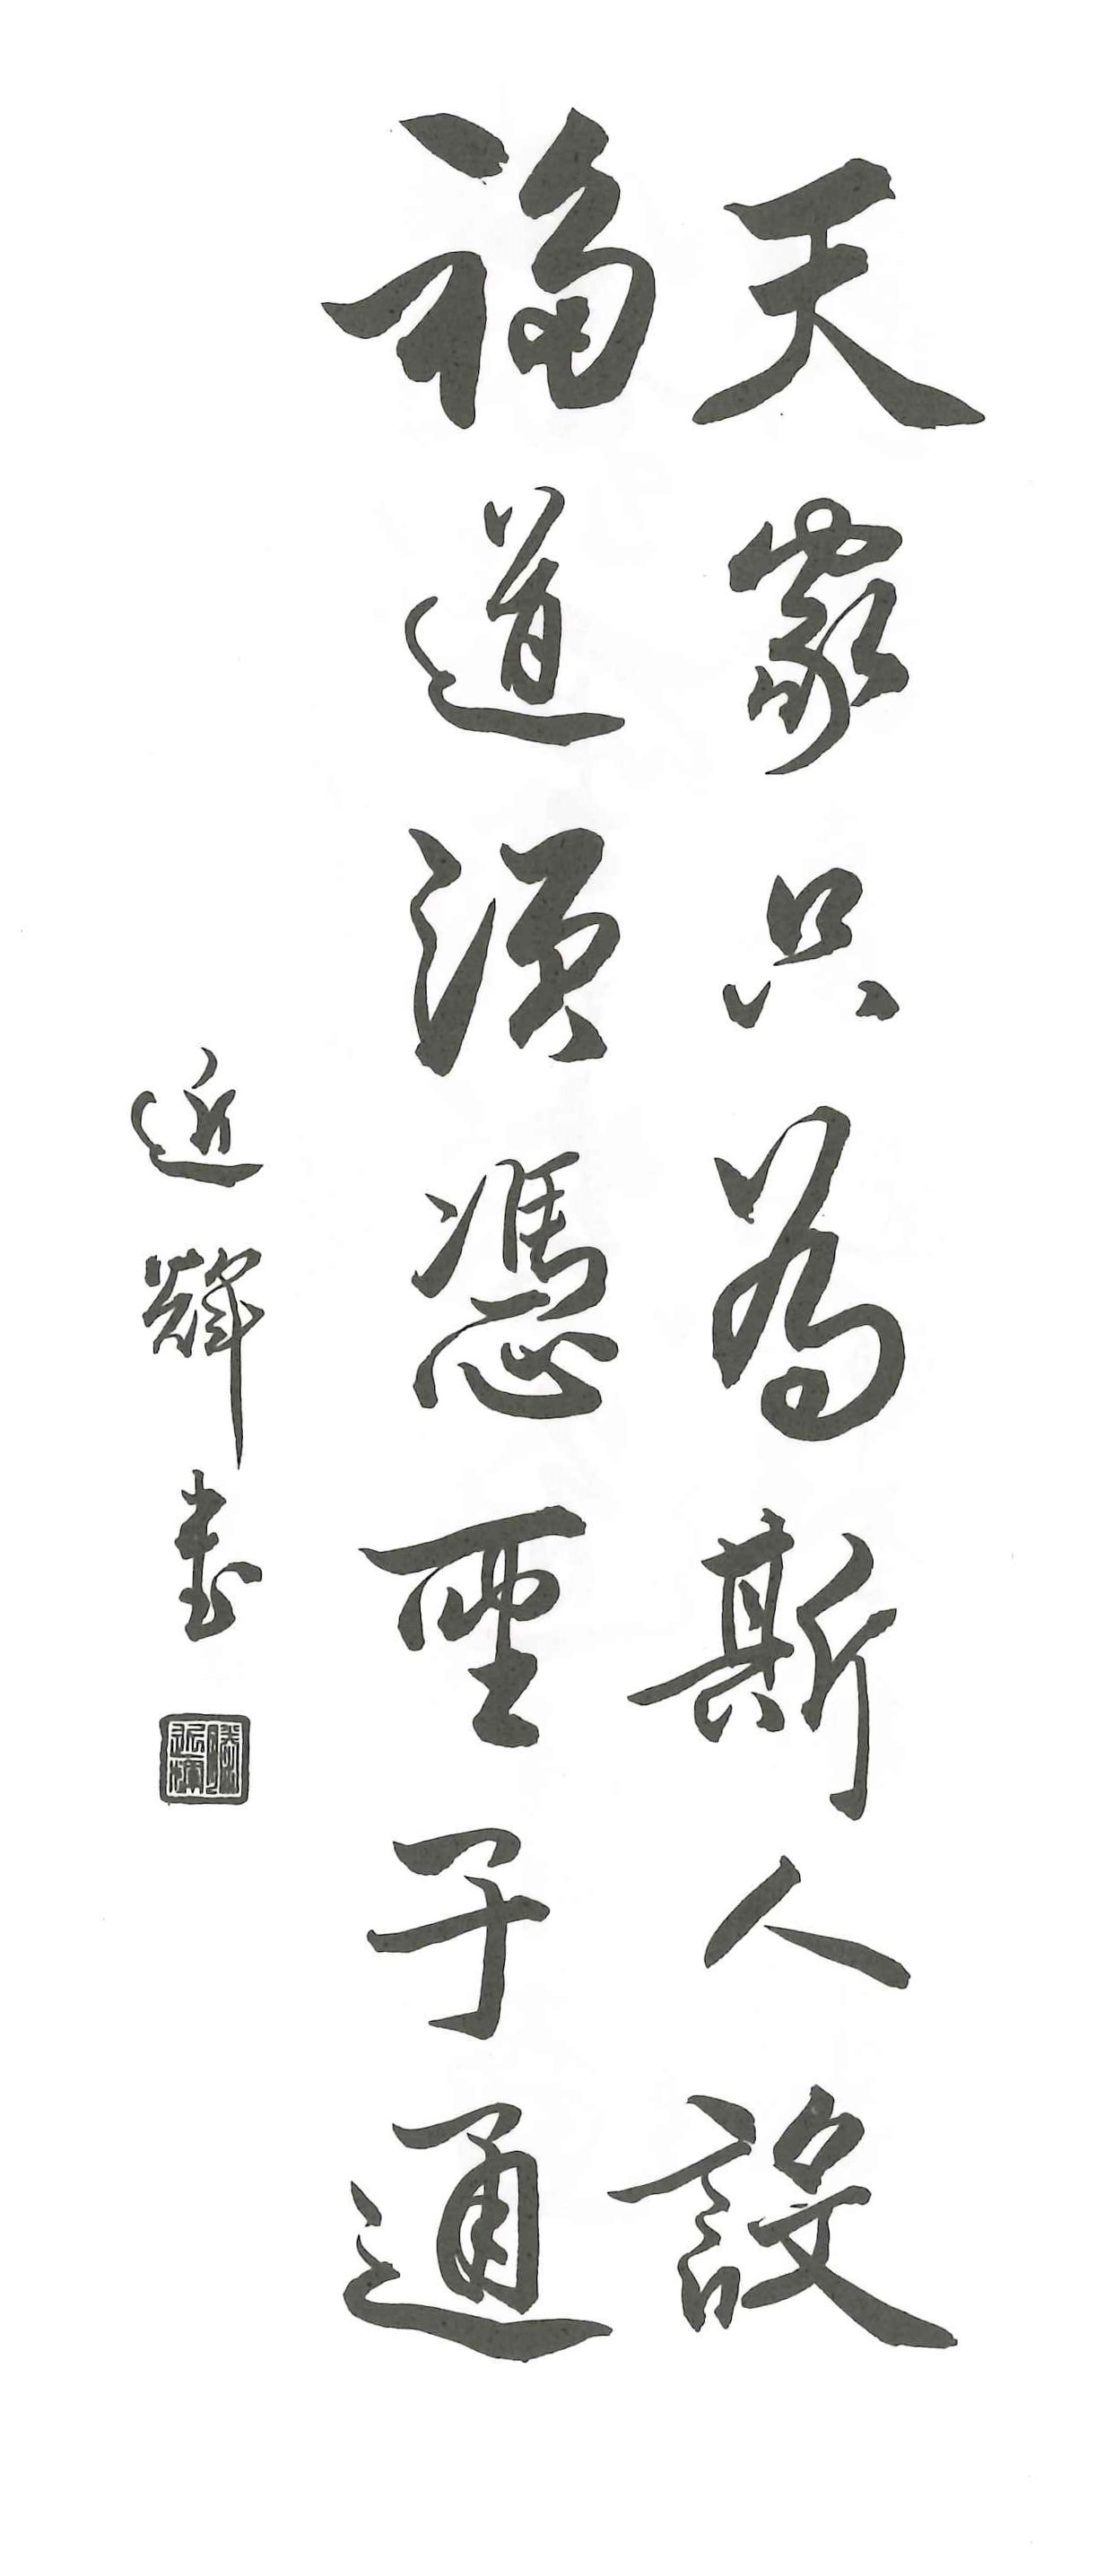 天象只為斯人設
福道須憑聖子通
近輝書